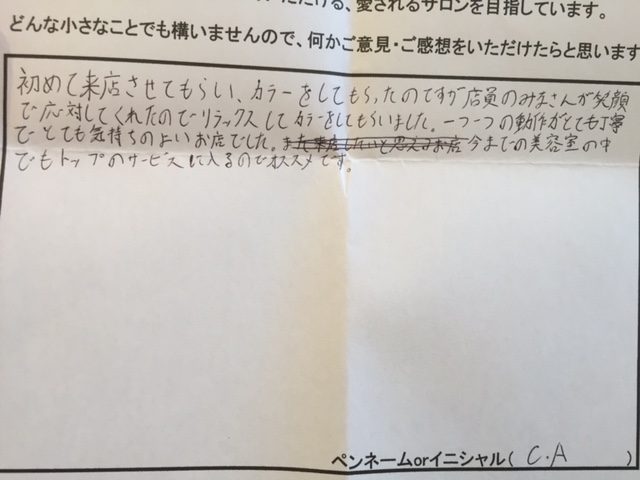 ただける、愛されるサロンを目指しています。
どんな小さなことでも構いませんので、何かご意見・ご感想をいただけたらと思います
初めて来店させてもらい、カラーをしてもらったのですが店員のみなさんが笑顔
で応対してくれたのでリラックスしてカラーをしてもらいました。一つ一つの動作がとても丁寧
でとても気持ちのよいお店でした。また来店したいと思えるお店今までの美容室の中
でもトップのサービスに入るのでオススメです。
ペンネームorイニシャル( C.A )